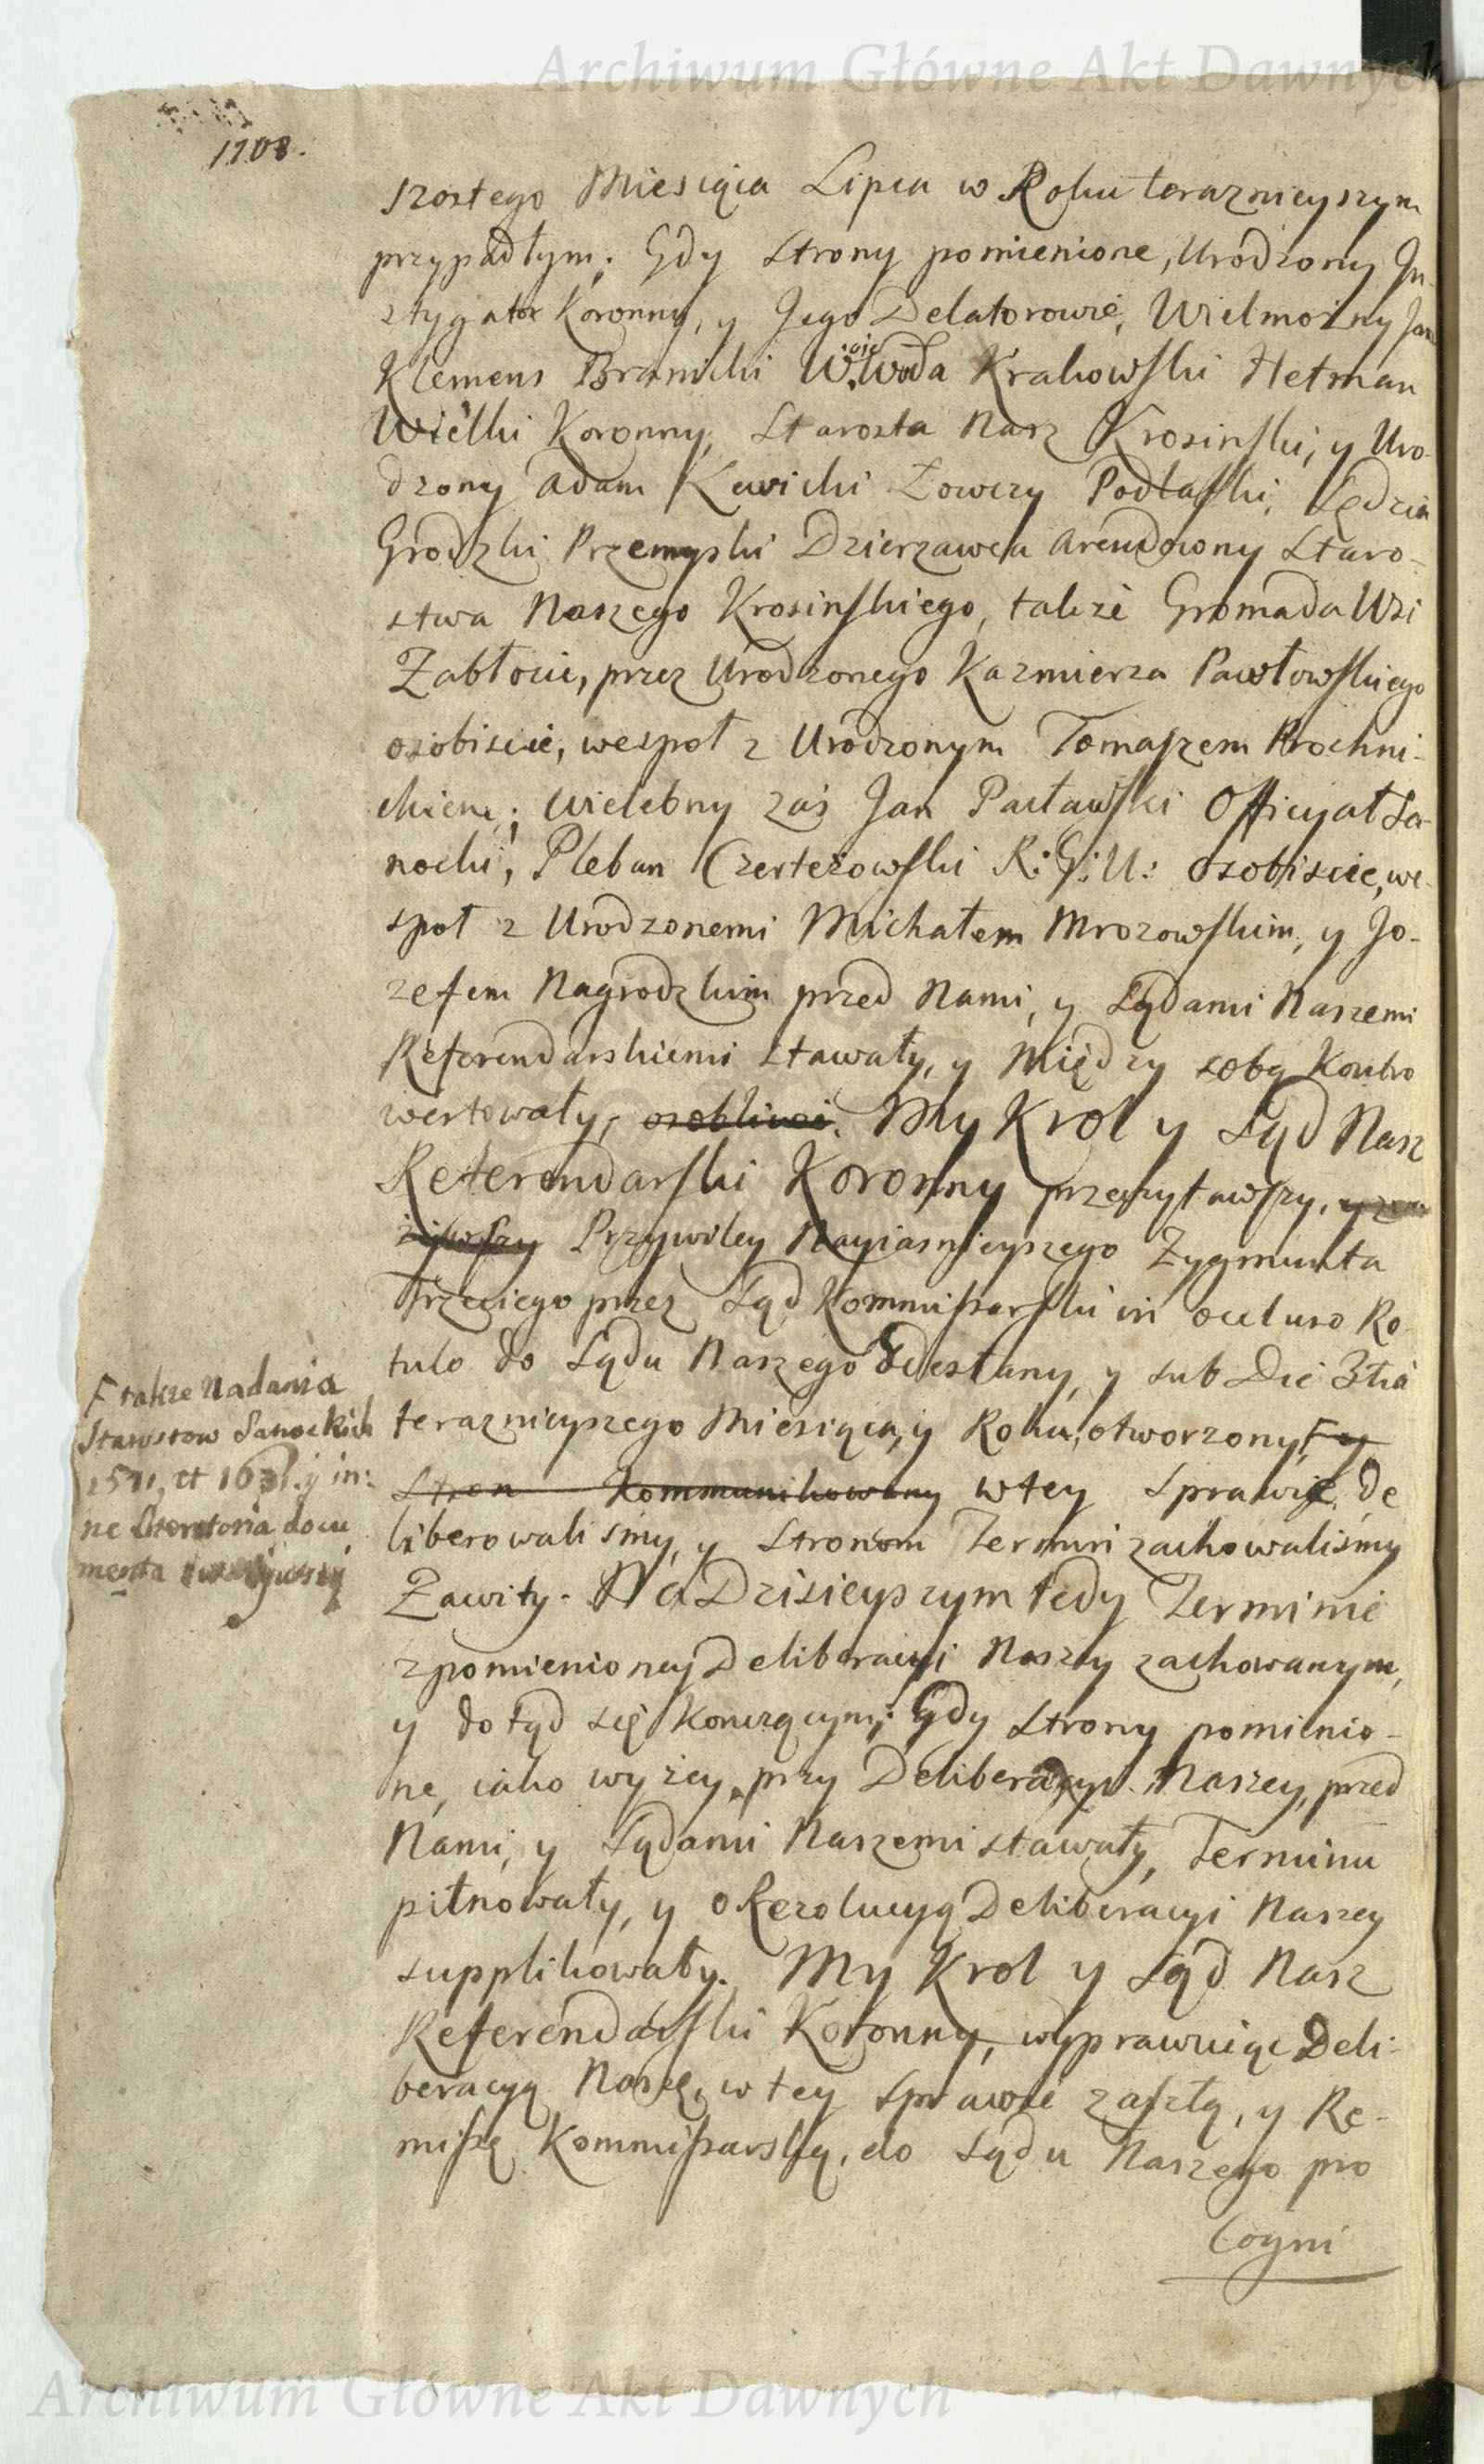 Archiwum Główne Akt Dawnych
1108.
szostego Miesiąca Lipca w Roku teraznieyszym
przypadłym; Gdy Strony pomienione, Urodzony In-
ztygator Koronny, y Jego Delatorowie, Wielmożny Jan
Klemens Branicki W.oie.Woda Krakowski Hetman
Wielki Koronny, Starosta Nasz Krosinski, y Uro-
dzony Adam Łowczy Podlaski, Sędzia
Grodzki Przemyski Dzierzawca Arendowny Staro-
stwa Naszego Krosinskiego, także Gromada Wsi
Zabłocie, przez Urodzonego Kazmierza Pawłowskiego
osobiscie, wespoł z Urodzonym Tomaszem Prochni-
ckiem; Wielebny zaś Jan Pacławski Officyał Sa-
nocki, Pleban Czerteżowski R: G: U: osobiscie, we-
społ z Urodzonemi Michałem Mrozowskim, y Jo-
zefem Nagrodzkim przed Nami, y Sądami Naszemi
Referendarskiemi stawały, y Między sobą Kontro
wertowały, osobliwie. My Krol y Sąd Nasz
Referendarski Koronny przeczytawszy,
Przywiley Nayiasnieyszego Zygmunta
Trzeciego przez Sąd Kommissarski in ocluso Ro-
tulo do Sądu Naszego Odesłany, y sub Die 3tia
teraznieyszego Miesiąca, y Roku, otworzony, F y
Stron Kommunikowany w tey Sprawie, de
liberowalismy, y Stronom Termin zachowalismy
Zawity. Na Dzisieyszym tedy Terminie
z pomienioney Deliberacyi Naszey zachowanym,
y dotąd się Konczącym; Gdy Strony pomienio-
ne, iako wyżey, przy Deliberacyi Naszey, przed
Nami, y Sądami Naszemi stawały, Terminu
pilnowały, y o Rezolucyą Deliberacyi Naszey
supplikowały. My Krol y Sąd Nasz
Referendarski Koronny, wyprawuiąc Deli-
beracyą Naszę, w tey Sprawie zaszłą, y Re-
missę Kommissarską, do Sądu Naszego pro
Cogni
F także Nadania
Starostow Sanockich
et y in:
ne docu
menta
Archiwum Główne Akt Dawnych